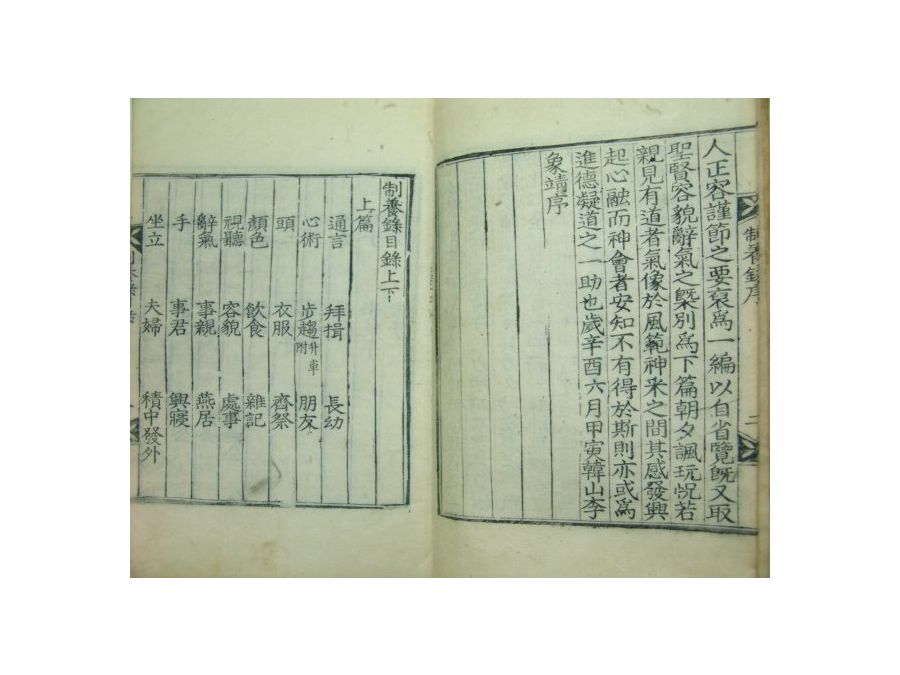 制養錄序
二
人正容謹節之要裒爲一編以自省覽旣又取
聖賢容貌辭氣之槩別爲下篇朝夕諷玩怳若
親見有道者氣像於風範神采之間其感發興
起心融而神會者安知不有得於斯則亦或爲
進德凝道之一助也歲辛酉六月甲寅韓山李
象靖序
制養錄目錄上下
上篇
通言 拜揖 長幼
心術 步趨附升車 朋友
頭 衣服 齊祭
顏色 飮食 雜記
視聽 容貌 處事
辭氣 事親 燕居
手 事君 興寢
坐立 夫婦 積中發外